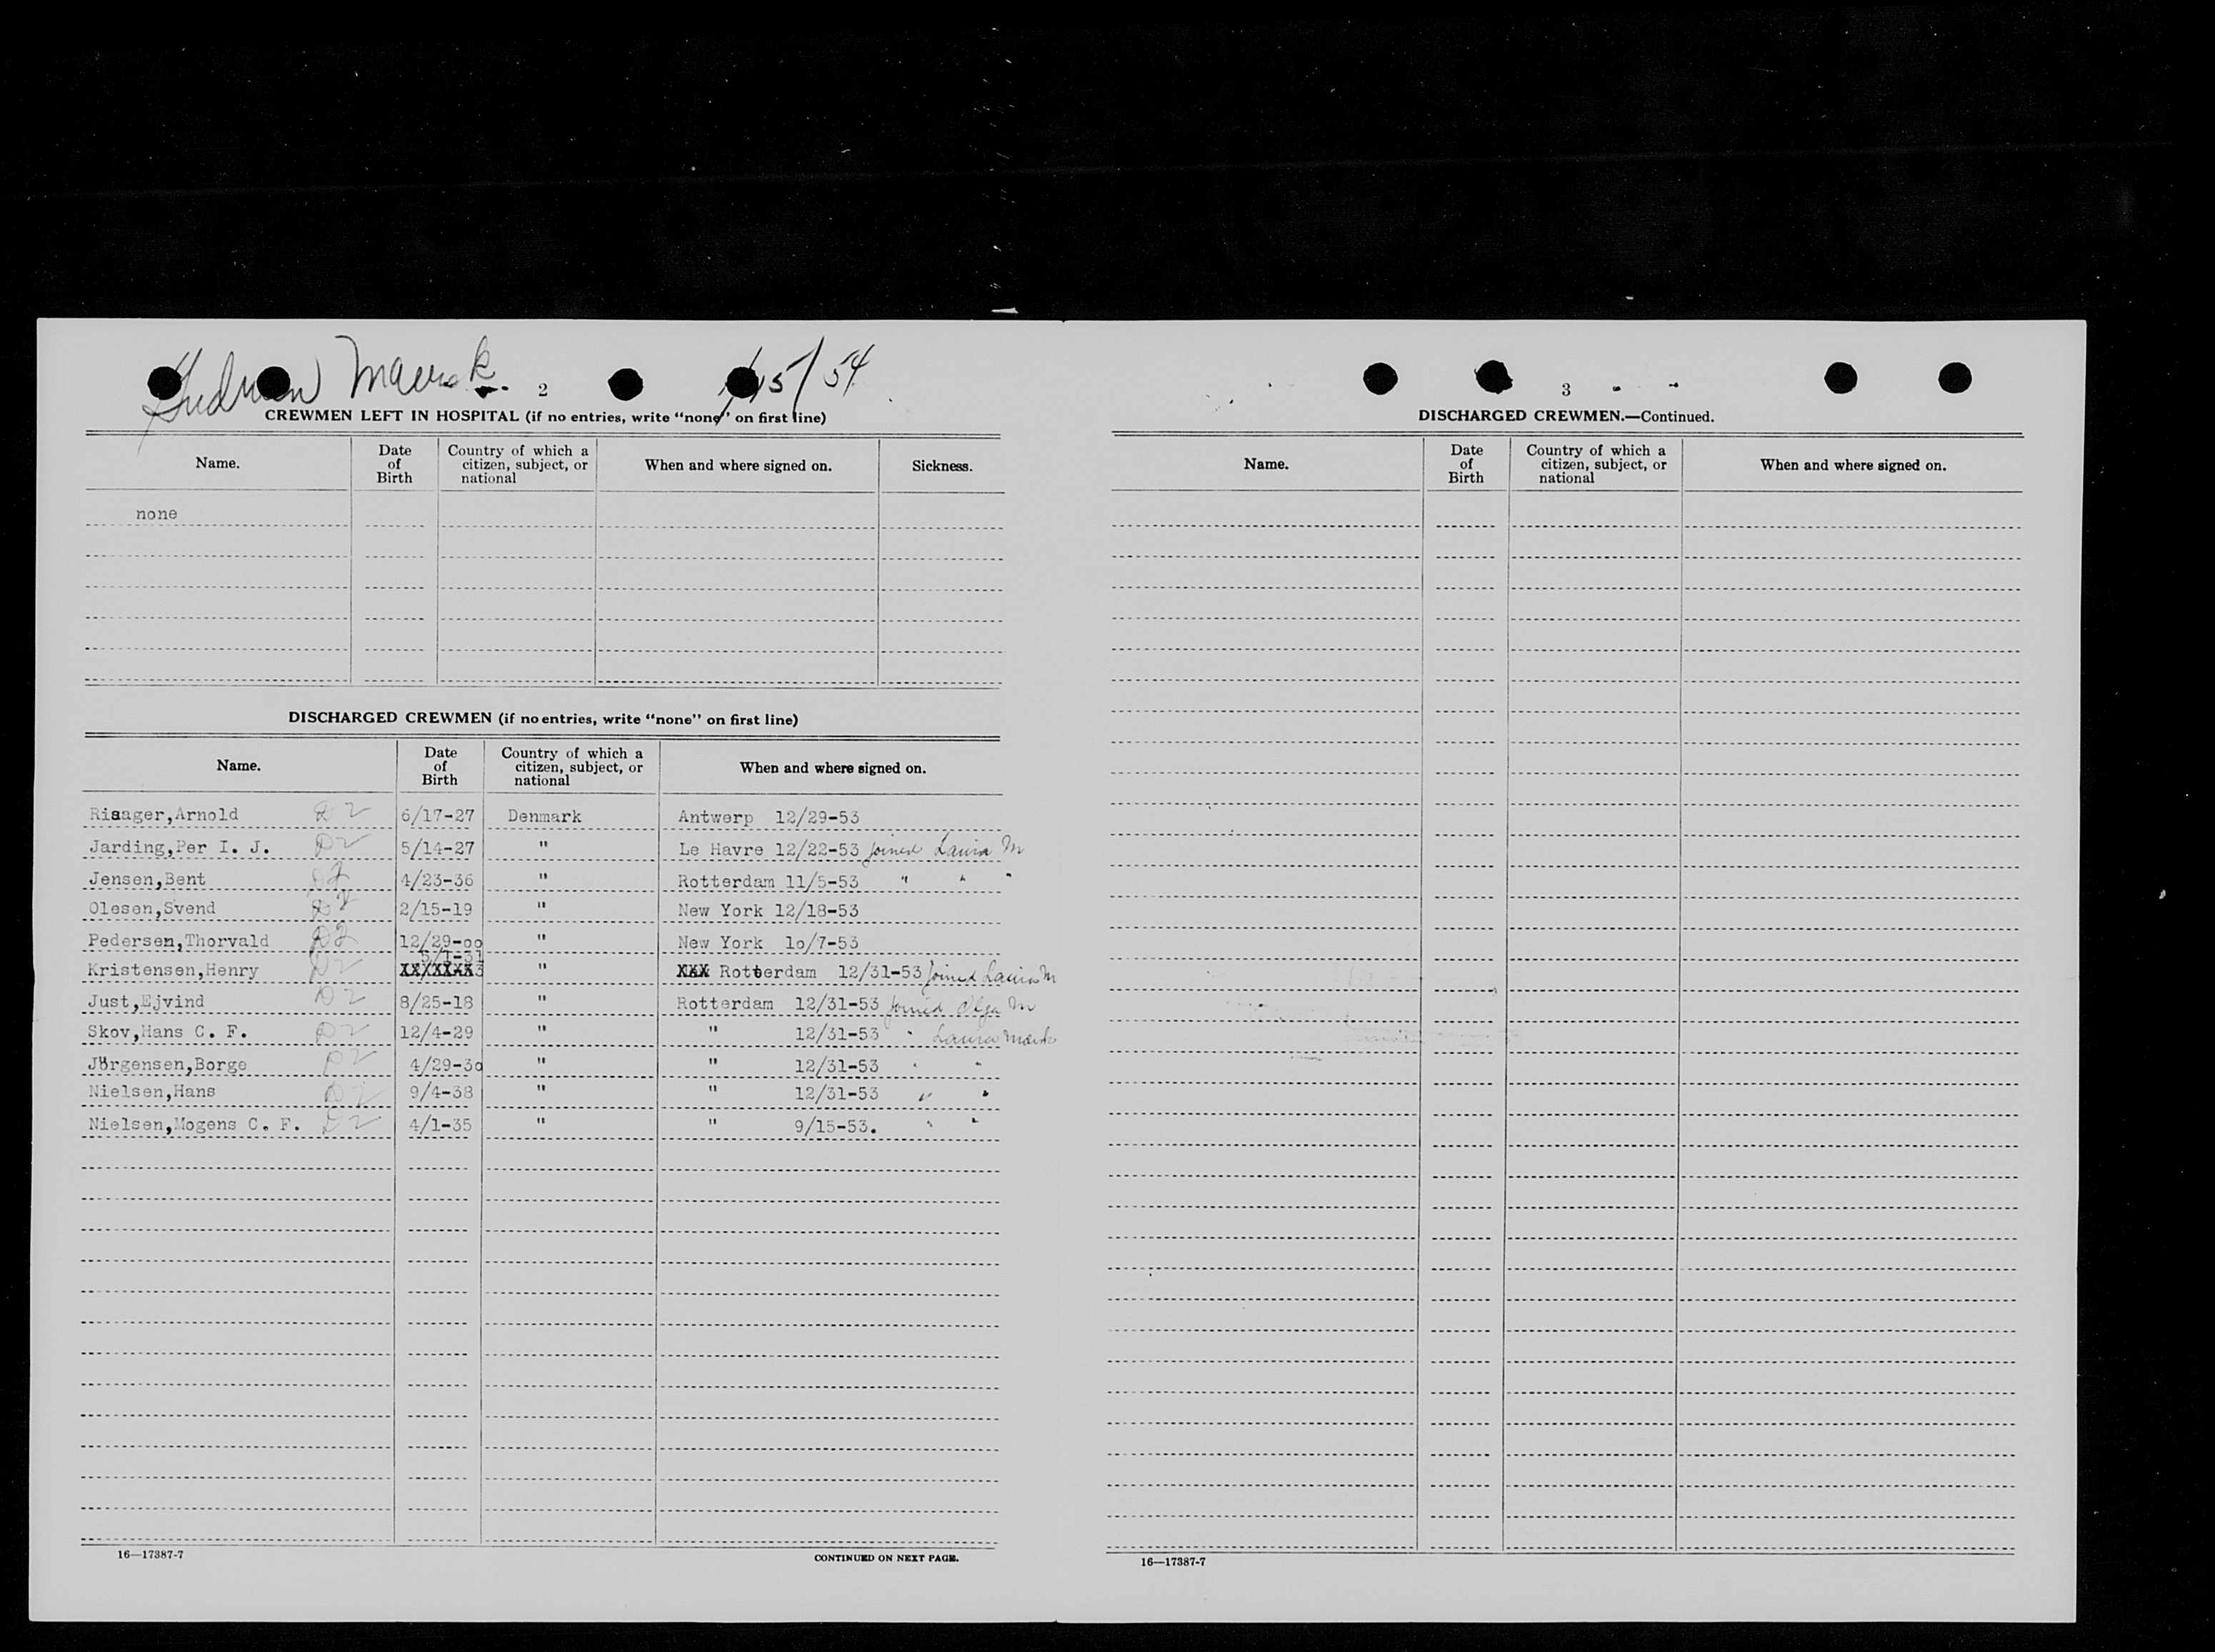 Gudrun Maersk. 2 1/15/54
CREWMEN LEFT IN HOSPITAL (if no entries, write "none" on first line)
Name. Date of Birth Country of which a citizen, subject, or national When and where signed on. Sickness.
none
DISCHARGED CREWMEN (if no entries, write "none" on first line)
Name. Date of Birth Country of which a citizen, subject, or national When and where signed on.
Risager,Arnold D2 6/17-27 Denmark Antwerp 12/29-53
Jarding,Per I. J. D2 5/14-27 " Le Havre 12/22-53 joined Laura M
Jensen,Bent D2 4/23-36 " Rotterdam 11/5-53 " " "
Olesen,Svend D2 2/15-19 " New York 12/18-53
Pedersen,Thorvald D2 12/29-oo " New York 1o/7-53
Kristensen,Henry D2 5/1-31 " XXX Rotterdam 12/31-53 joined Laura M
Just,Ejvind D2 8/25-18 " Rotterdam 12/31-53 joined Olga M
Skov,Hans C. F. D2 12/4-29 " " 12/31-53 " Laura Maersk
Jörgensen,Borge D2 4/29-3o " " 12/31-53 " "
Nielsen,Hans D2 9/4-38 " " 12/31-53 " "
Nielsen,Mogens C. F. D2 4/1-35 " " 9/15-53. " "
16—17387-7 CONTINUED ON NEXT PAGE.
3
DISCHARGED CREWMEN.—Continued.
Name. Date of Birth Country of which a citizen, subject, or national When and where signed on.
16—17387-7